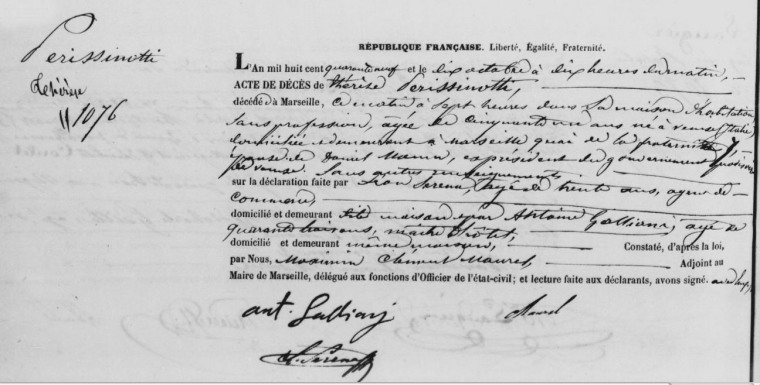 Perissinotti
Thérèse
1076
RÉPUBLIQUE FRANÇAISE. Liberté, Égalité, Fraternité.
L'An mil huit cent quarante neuf et le dix octobre à dix heures du matin,
ACTE DE DÉCÈS de Thérèse Perissinotti,
décédé à Marseille, ce matin à sept heures dans sa maison d'habitation
sans profession, agée de cinquante un ans né à Venise (Italie)
domiciliée et demeurant à Marseille quai de la fraternité
épouse de Daniel Manin, ex président du gouvernement
de Venise. Sans autres renseignements
sur la déclaration faite par Léon Serena, agé de trente ans, agent de
commerce,
domicilié et demeurant dite maison et par Antoine Galliani, agé de
quarante trois ans, maître d'hôtel,
domicilié et demeurant même maison, Constaté, d'après la loi,
par Nous, Maximin Clément Maurel, Adjoint au
Maire de Marseille, délégué aux fonctions d'Officier de l'état-civil; et lecture faite aux déclarants, avons signé.
ant. Galliani Maurel
L. Serena